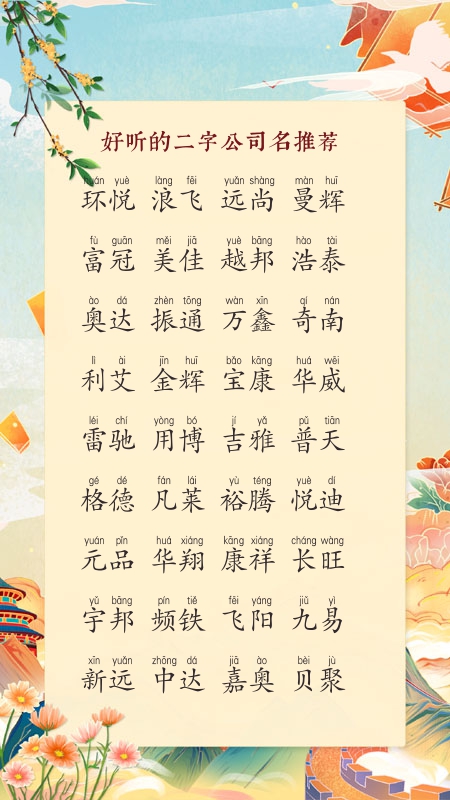 好听的二字公司名推荐
huán yuè làng fēi yuǎn shàng màn huī
环悦 浪飞 远尚 曼辉
fù guān měi jiā yuè bāng hào tài
富冠 美佳 越邦 浩泰
ào dá zhèn tōng wàn xīn qí nán
奥达 振通 万鑫 奇南
lì ài jīn huī bǎo kāng huá wēi
利艾 金辉 宝康 华威
léi chí yòng bó jí yǎ pǔ tiān
雷驰 用博 吉雅 普天
gé dé fán lái yù téng yuè dí
格德 凡莱 裕腾 悦迪
yuán pǐn huá xiáng kāng xiáng cháng wàng
元品 华翔 康祥 长旺
yǔ bāng pín tiě fēi yáng jiǔ yì
宇邦 频铁 飞阳 九易
xīn yuǎn zhōng dá jiā ào bèi jù
新远 中达 嘉奥 贝聚